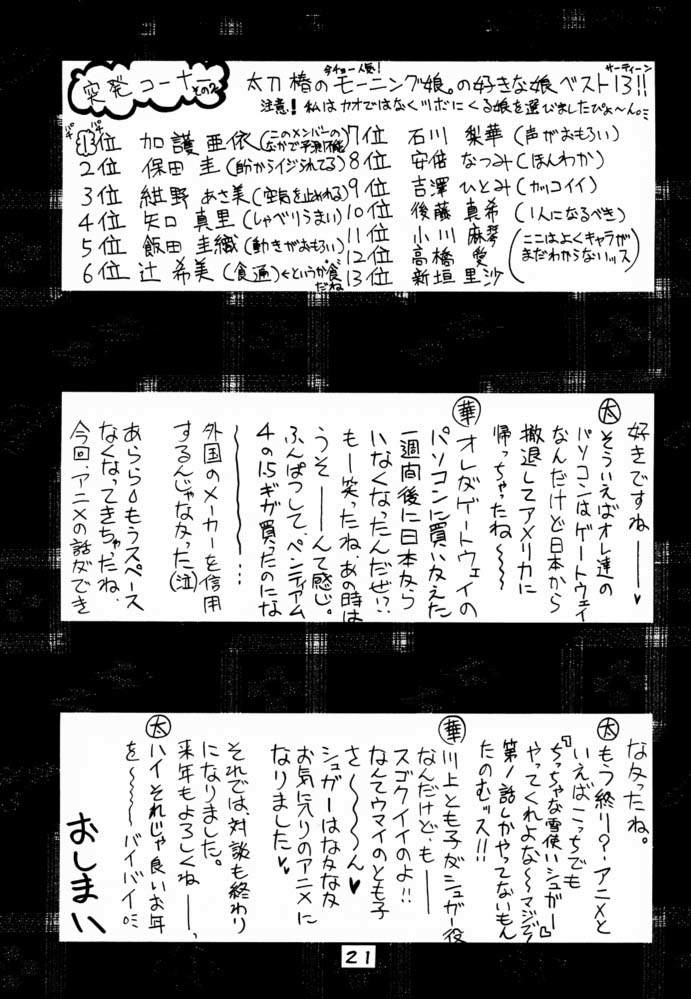 突発コーナー その2
今チョー人気! サーティーン
太刀椿のモーニング娘。の好きな娘ベスト13!!
注意! 私はカオではなくツボにくる娘を選びましたぴょ〜ん。
パチ パチ
1位 加護亜依(このメンバーのなかで予測不能)
2位 保田圭(助からイジられてる)
3位 紺野あさ美(空気を止めれる)
4位 矢口真里(しゃべりうまい)
5位 飯田圭織(動きがおもろい)
6位 辻希美(食遍)←というか食だね
7位 石川梨華(声がおもろい)
8位 安倍なつみ(ほんわか)
9位 吉澤ひとみ(カッコイイ)
10位 後藤真希(1人になるべき)
11位 小川麻琴
12位 高橋愛
13位 新垣里沙
(ここはよくキャラがまだわからないッス)
好きですね———♥
太 そういえばオレ達の
パソコンはゲートウェイ
なんだけど日本から
撤退してアメリカに
帰っちゃったね〜〜
華 オレがゲートウェイの
パソコンに買いかえた
一週間後に日本から
いなくなったんだぜ!?
もー笑ったね、あの時は
うそ——んて感じ。
ふんぱつして、ペンティアム
4の1.5ギガ買ったのにな
〜〜〜〜〜…
外国のメーカーを信用
するんじゃなかった(泣)
あららもうスペース
なくなってきちゃたね、
今回、アニメの話ができ
なかったね。
太 もう終り?アニメと
いえばこっちでも
『ちっちゃな雪使いシュガー』
やってくれよな〜マジで
第1話しかやってないもん
たのむッス!!
華 川上とも子がシュガー役
なんだけど、も——
スゴクイイのよ!!
なんてウマイのとも子
さ〜〜〜ん♥
シュガーはなかなか
お気に入りのアニメに
なりました♥♥
それでは、対談も終わり
になりました。
来年もよろしくね——、
太 ハイそれじゃ良いお年
を〜〜〜バイバイ
おしまい
21